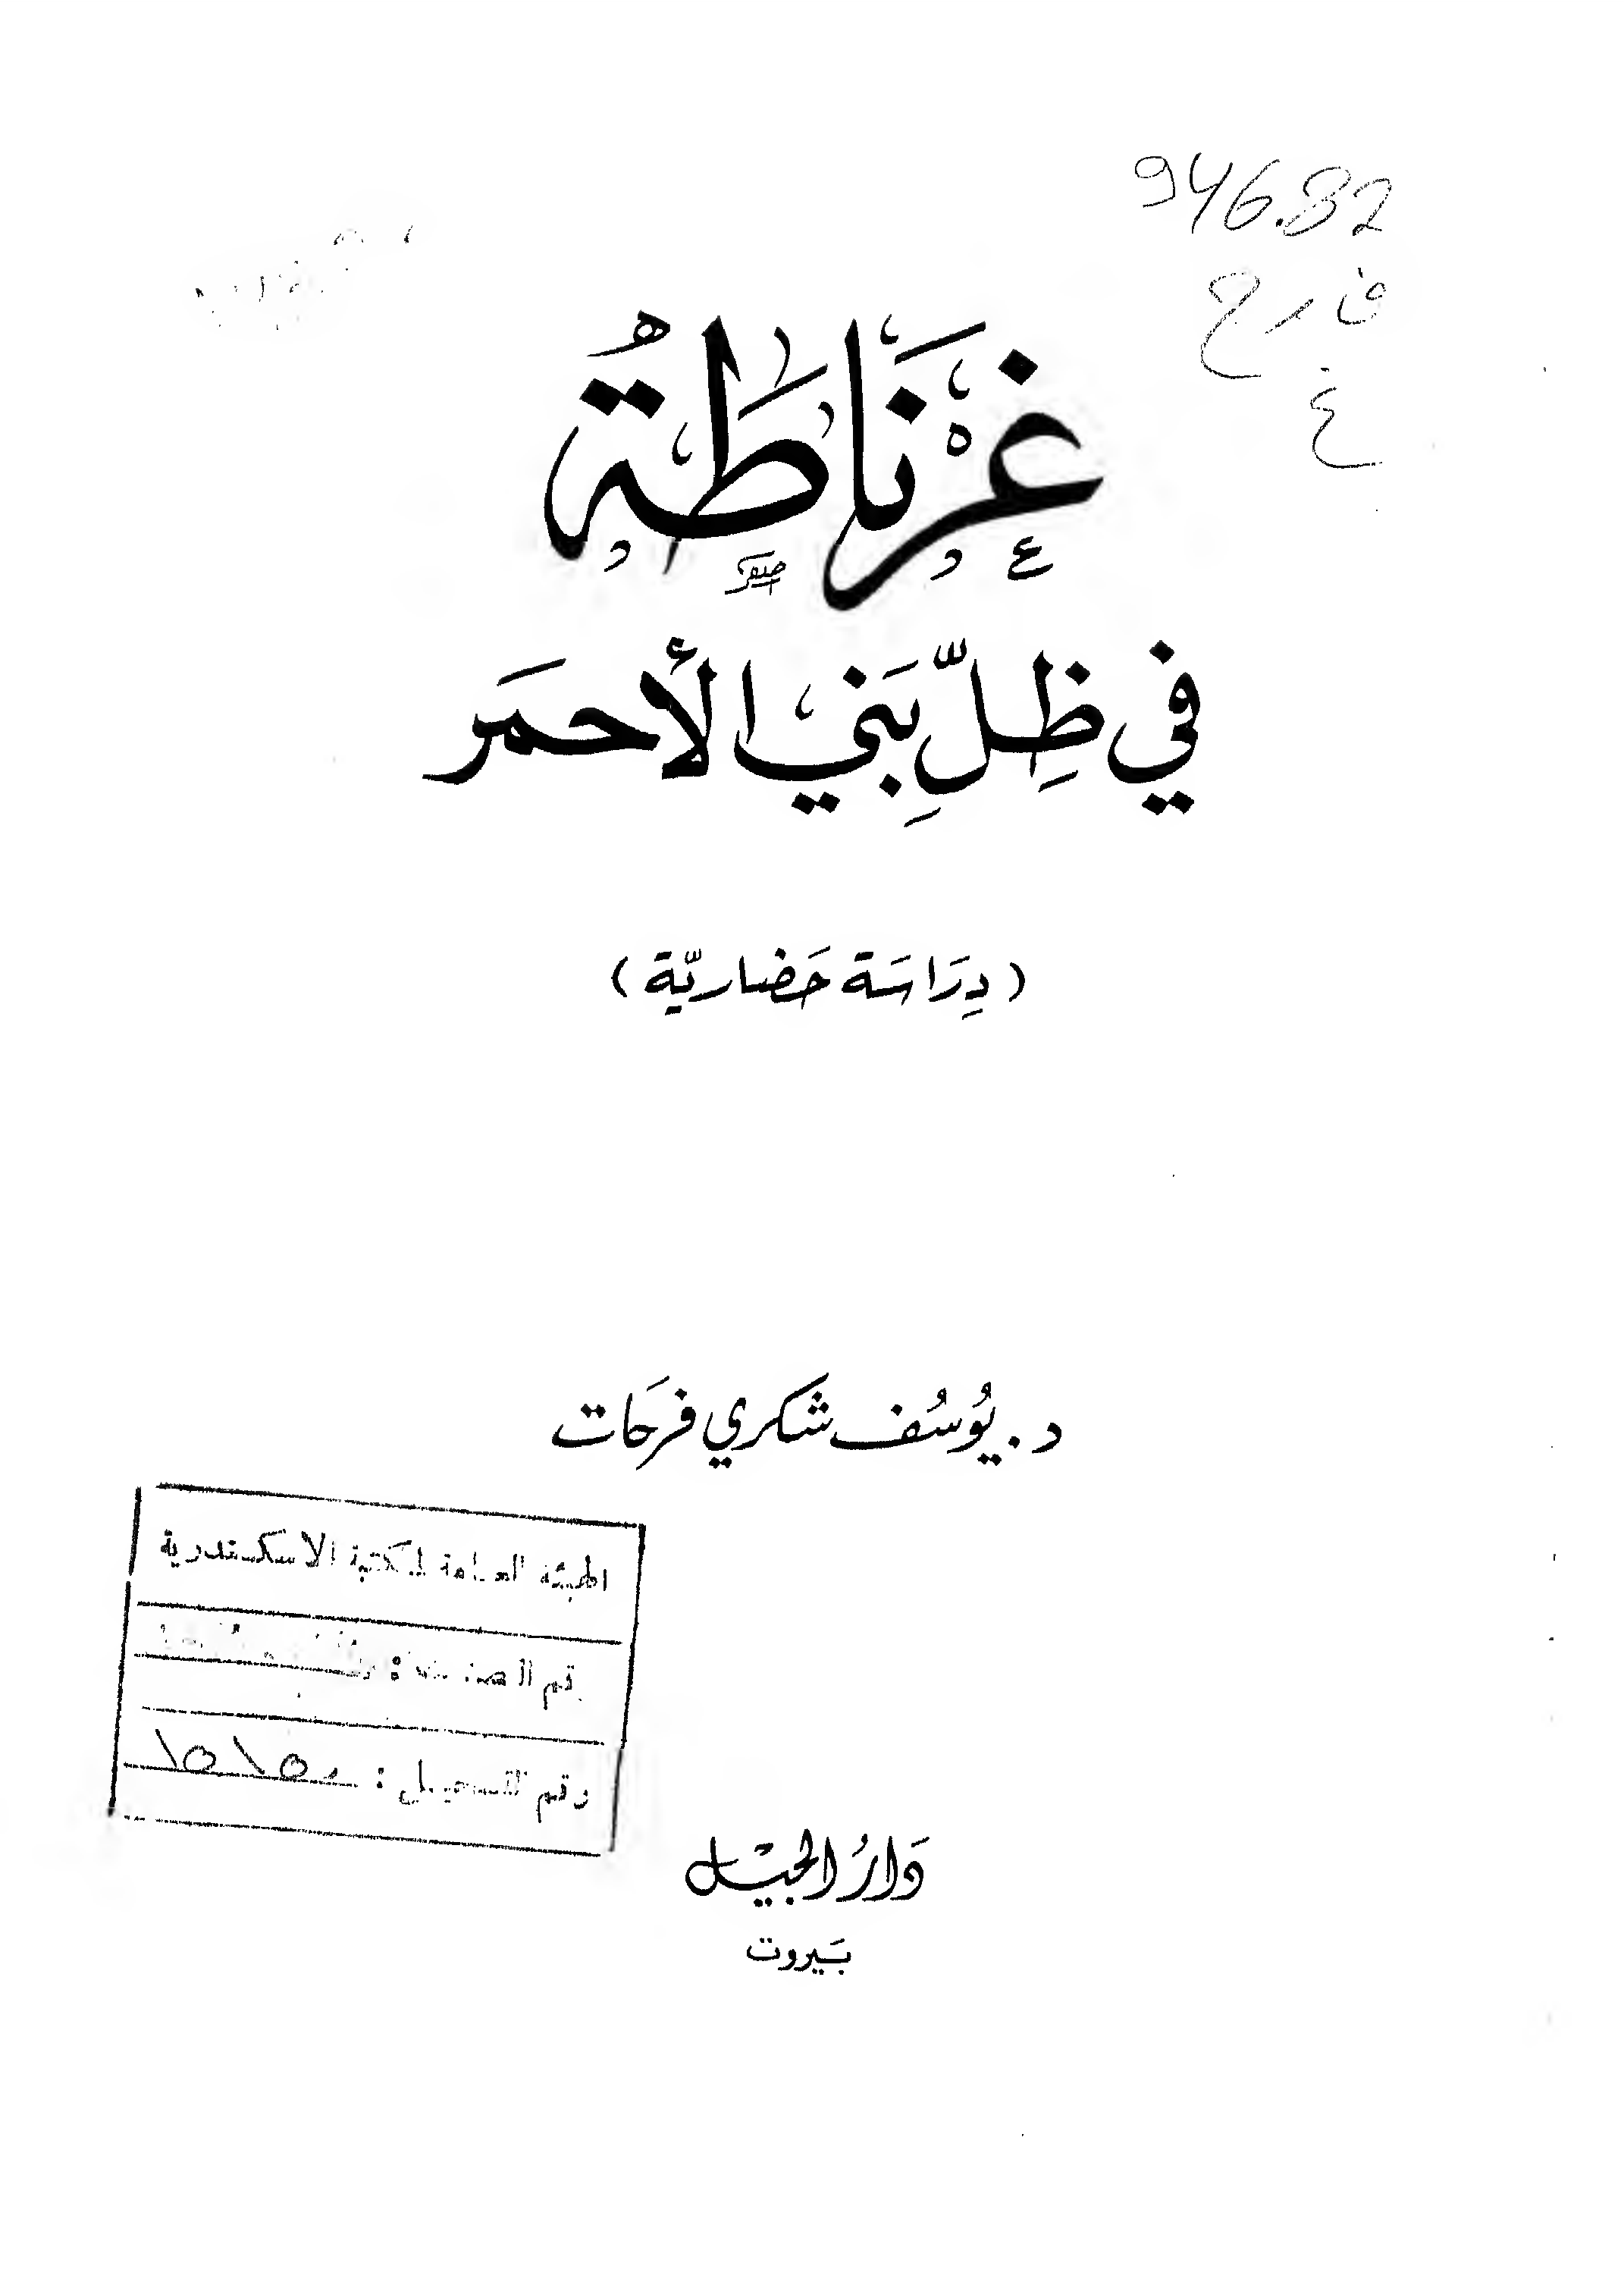 946.82
ف ر ح
غ
غَرْنَاطَةُ
في ظِلِّ بَني الأحمَر
(دِرَاسَة حَضاريّة)
د. يُوسُف شكري فرحَات
الهيئة العامة لمكتبة الاسكندرية
رقم التسجيل : ١٥١٥٠
دَارُ الجيْل
بَيروت